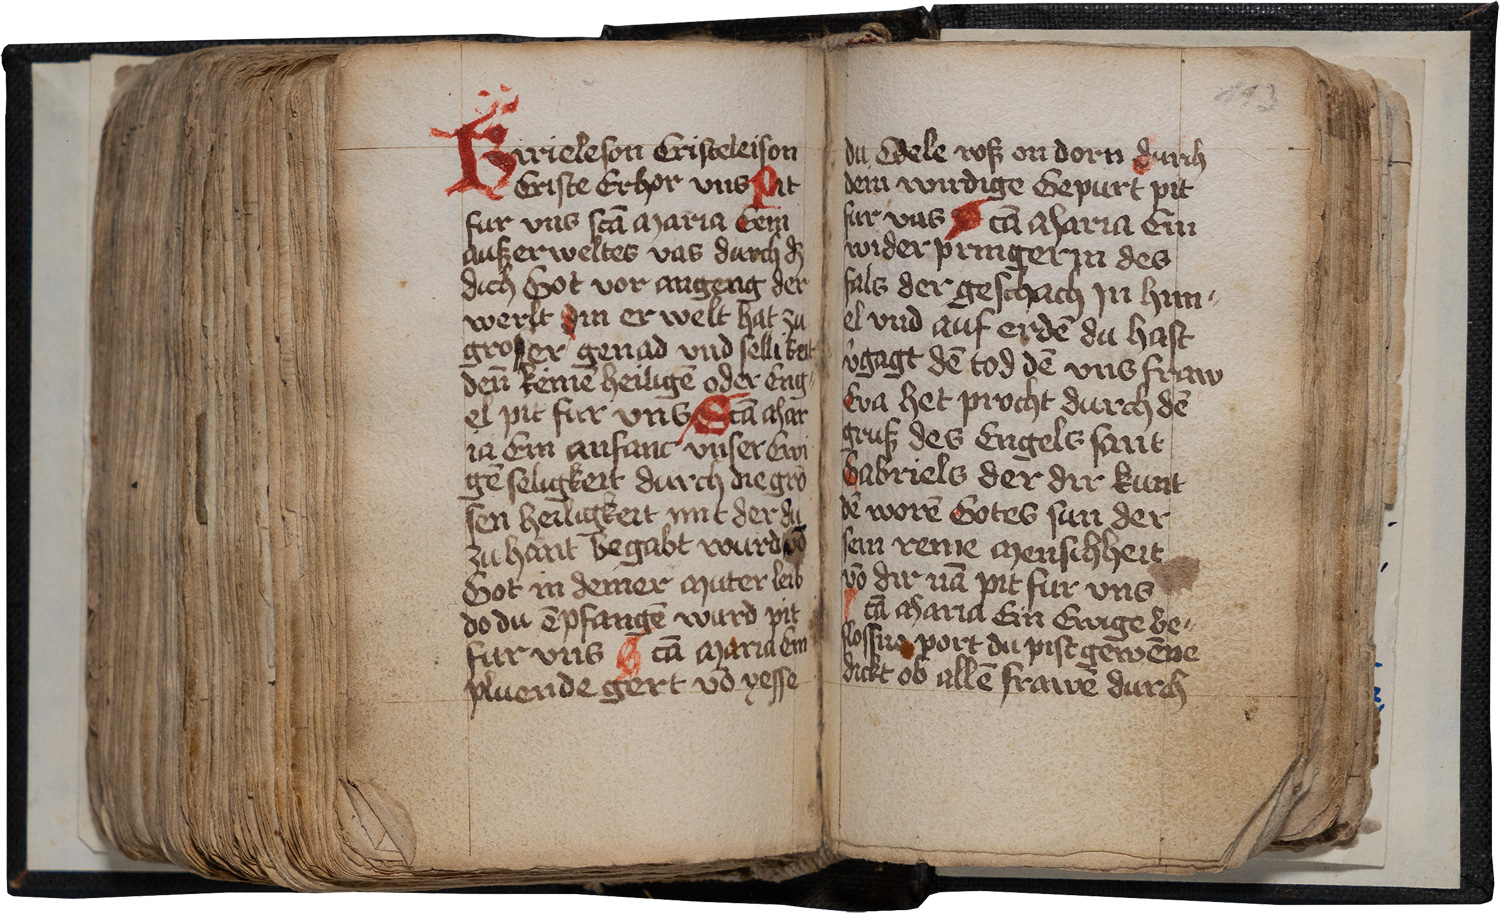 Kirieleson Cristeleison
Criste Erhor vns Pit
fur vns scā maria Ein
auszerweltes vas durch dz
dich Got vor angeng der
werlt Jn er welt hat zu
groser genad vnd sellikeit
den keinē heiligē oder Eng-
el pit fur vns Scā mar
ia Ein anfanc vnser Ewi
gē seligkeit durch die gro
sen heiligkeit mit der du
zu hant begabt wurd vō
Got in deiner muter leib
do du ēpfangē wurd pit
fur vns Scā maria Ein
pluende gert vō yesse
113
du Edele rosz on dorn durch
dein wirdige Gepurt pit
fur vns Scā maria Ein
wider pringerin des
fals der geschach Jn him-
el vnd auf erdē du hast
v̄gagt dē tod dē vns fraw
Eva het procht durch dē
grusz des Engels sant
Gabriels der dir kunt
dē worē Gotes sun der
sein reine menschheit
vō dir nā pit fur vns
Scā maria Ein Ewige be-
slossne port du pist gewēne
dickt ob allē frawē durch